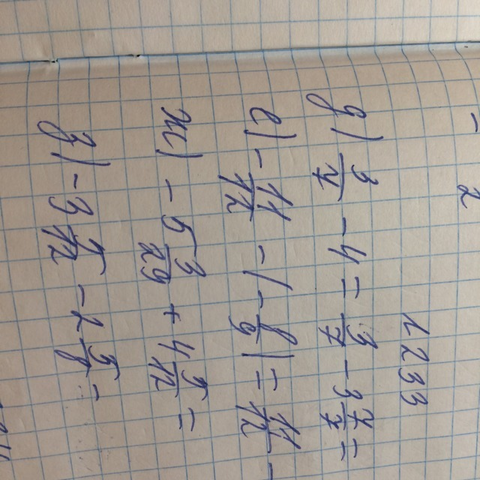 1233
д) 3/7 - 4 = 3/7 - 3 7/7 =
е) - 11/12 - (- 8/9) = 11/12 -
ж) - 5 3/29 + 4 5/12 =
з) - 3 5/12 - 2 5/8 =